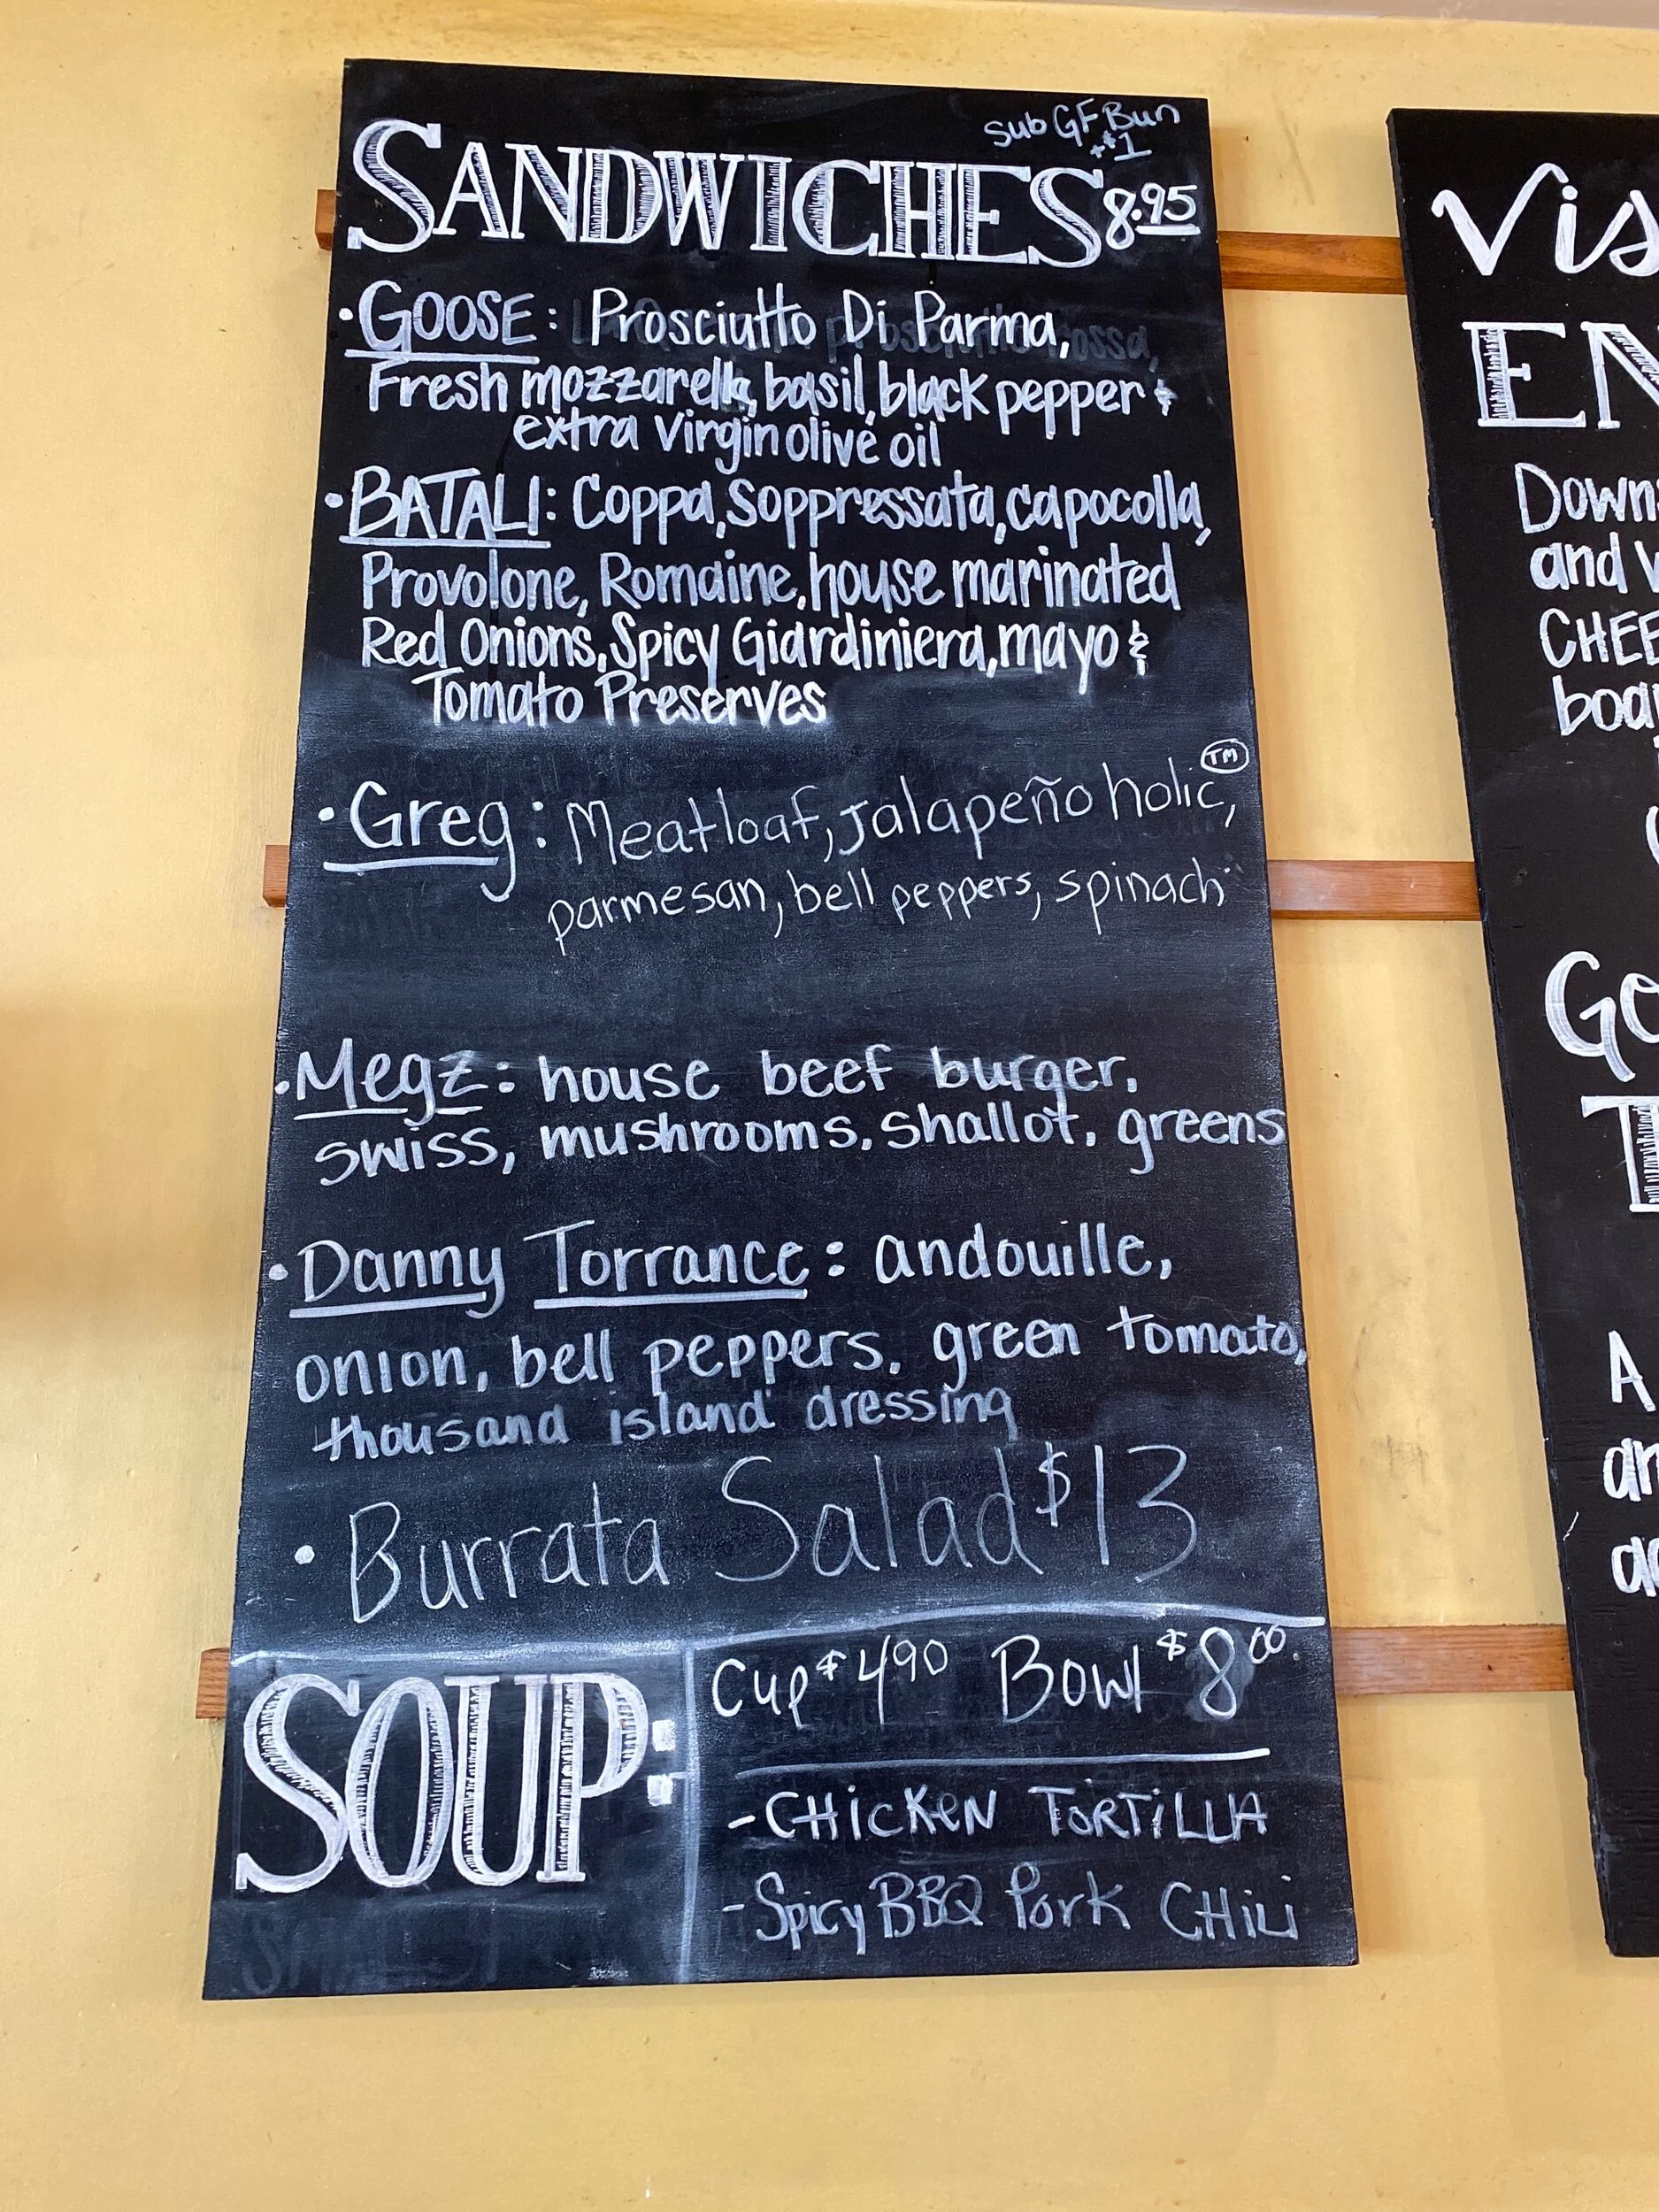 sub GF Bun
+$1
SANDWICHES 8.95
• GOOSE: Prosciutto Di Parma,
Fresh mozzarella, basil, black pepper &
extra virgin olive oil
• BATALI: Coppa, Soppressata, capocolla,
Provolone, Romaine, house marinated
Red Onions, Spicy Giardiniera, mayo &
Tomato Preserves
• Greg: Meatloaf, jalapeño holic™,
parmesan, bell peppers, spinach
• Megz: house beef burger,
swiss, mushrooms, shallot, greens
• Danny Torrance: andouille,
onion, bell peppers, green tomato,
thousand island dressing
• Burrata Salad $13
SOUP:
Cup $4.90 Bowl $8.00
- CHicKeN TORTiLLA
- Spicy BBQ Pork CHili
Vis
EN
Down
and
CHEE
boa
Go
T
A
an